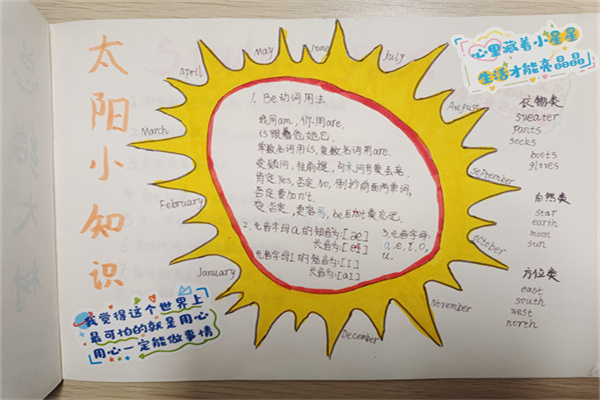 太阳小知识
心里藏着小星星
生活才能亮晶晶
January
February
March
April
May
June
July
August
september
october
November
December
1. Be动词用法
我用am, 你用are.
is跟着他她它.
单数名词用is, 复数名词用are.
变疑问, 往前提, 句末问号莫丢弃.
肯定Yes, 否定No, 倒抄前面两单词,
否定要加n't.
变否定, 更容易, be后not莫忘记.
2. 元音字母a的短音为:[æ]
长音为:[ei]
元音字母I的短音为:[I]
长音为:[aI]
3. 元音字母:
a, e, i, o,
u.
衣物类
sweater
pants
socks
boots
gloves
自然类
star
earth
moon
sun
方位类
east
south
west
north
我觉得这个世界上
最可怕的就是用心
用心一定能做事情